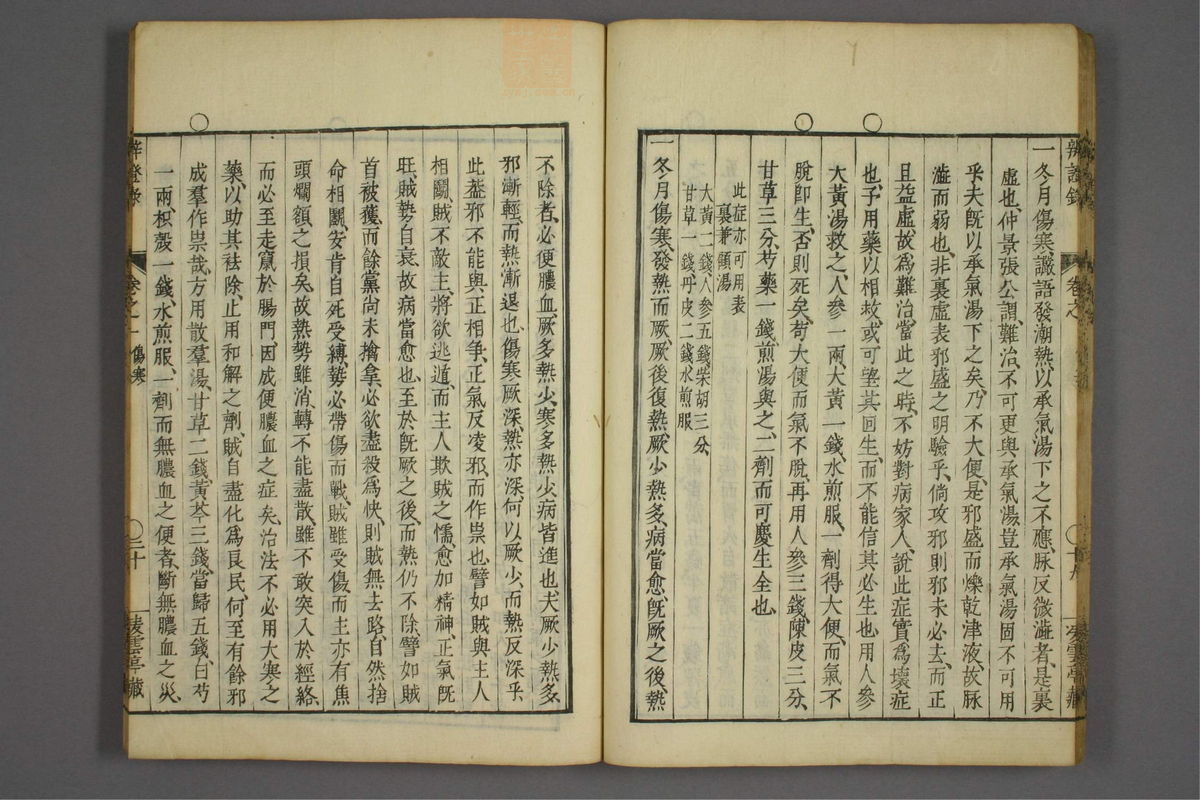 一冬月傷寒譫語發潮熱以承氣湯下之不應脉反微澁者是裏
虛也仲景張公謂難治不可更與承氣湯豈承氣湯固不可用
乎夫旣以承氣湯下之矣乃不大便是邪盛而爍乾津液故脉
澁而弱也非裏虛表邪盛之明驗乎倘攻邪則邪未必去而正
且益虛故爲難治當此之時不妨對病家人說此症實爲壞症
也予用藥以相救或可望其回生而不能信其必生也用人參
大黃湯救之人參一兩大黃一錢水煎服一劑得大便而氣不
脫卽生否則死矣苟大便而氣不脫再用人參三錢陳皮三分
甘草三分芍藥一錢煎湯與之二劑而可慶生全也
此症亦可用表
裏兼顧湯
大黃二錢人參五錢柴胡三分
甘草一錢丹皮二錢水煎服
一冬月傷寒發熱而厥厥後復熱厥少熱多病當愈旣厥之後熱
不除者必便膿血厥多熱少寒多熱少病皆進也夫厥少熱多
邪漸輕而熱漸退也傷寒厥深熱亦深何以厥少而熱反深乎
此蓋邪不能與正相爭正氣反凌邪而作祟也譬如賊與主人
相鬭賊不敵主將欲逃遁而主人欺賊之懦愈加精神正氣旣
旺賊勢自衰故病當愈也至於旣厥之後而熱仍不除譬如賊
首被獲而餘黨尚未擒拿必欲盡殺爲快則賊無去路自然捨
命相鬭安肯自死受縛勢必帶傷而戰賊雖受傷而主亦有焦
頭爛額之損矣故熱勢雖消轉不能盡散雖不敢突入於經絡
而必至走竄於腸門因成便膿血之症矣治法不必用大寒之
藥以助其祛除止用和解之劑賊自盡化爲良民何至有餘邪
成羣作祟哉方用散羣湯甘草二錢黃芩三錢當歸五錢白芍
一兩枳殼一錢水煎服一劑而無膿血之便者斷無膿血之災
辨證錄
卷之一
傷寒
二十
凌雲亭藏